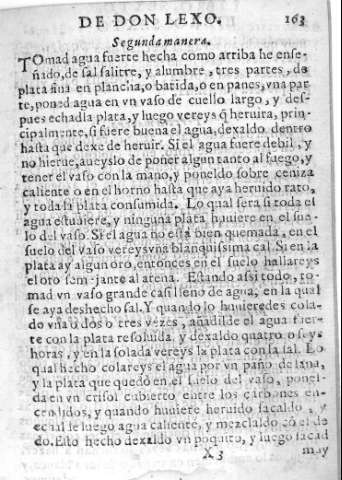 DE DON LEXO. 163
Segunda manera.
TOmad agua fuerte hecha como arriba he ense-
ñado, de sal salitre, y alumbre, tres partes, de
plata fina en plancha, o batida, o en panes, vna par
te, poned agua en vn vaso de cuello largo, y des-
pues echad la plata, y luego vereys q̃ heruira, prin-
cipalmente, si fuere buena el agua, dexaldo dentro
hasta que dexe de heruir. Si el agua fuere debil, y
no hierue, aueyslo de poner algun tanto al fuego, y
tener el vaso con la mano, y poneldo sobre ceniza
caliente o en el horno hasta que aya heruido rato,
y toda la plata consumida. Lo qual sera si toda el
agua estuuiere, y ninguna plata huuiere en el sue-
lo del vaso. Si el agua no esta bien quemada, en el
suelo del vaso vereys vna blanquissima cal. Si en la
plata ay algun oro, entonces en el suelo hallareys
el oro semejante al arena. Estando assi todo, to-
mad vn vaso grande casi lleno de agua, en la qual
se aya deshecho sal. Y quando lo huuieredes cola-
do vna o dos o tres vezes, añadilde el agua fuer-
te con la plata resoluida, y dexaldo quatro o seys
horas, y en la colada vereys la plata con la sal. Lo
qual hecho colareys el agua por vn paño de lana,
y la plata que quedó en el suelo del vaso, ponel-
da en vn crisol cubierto entre los carbones en-
cendidos, y quando huuiere heruido sacaldo, y
echalde luego agua caliente, y mezclaldo có el de
do. Esto hecho dexaldo vn poquito, y luego sacad
X 3 muy